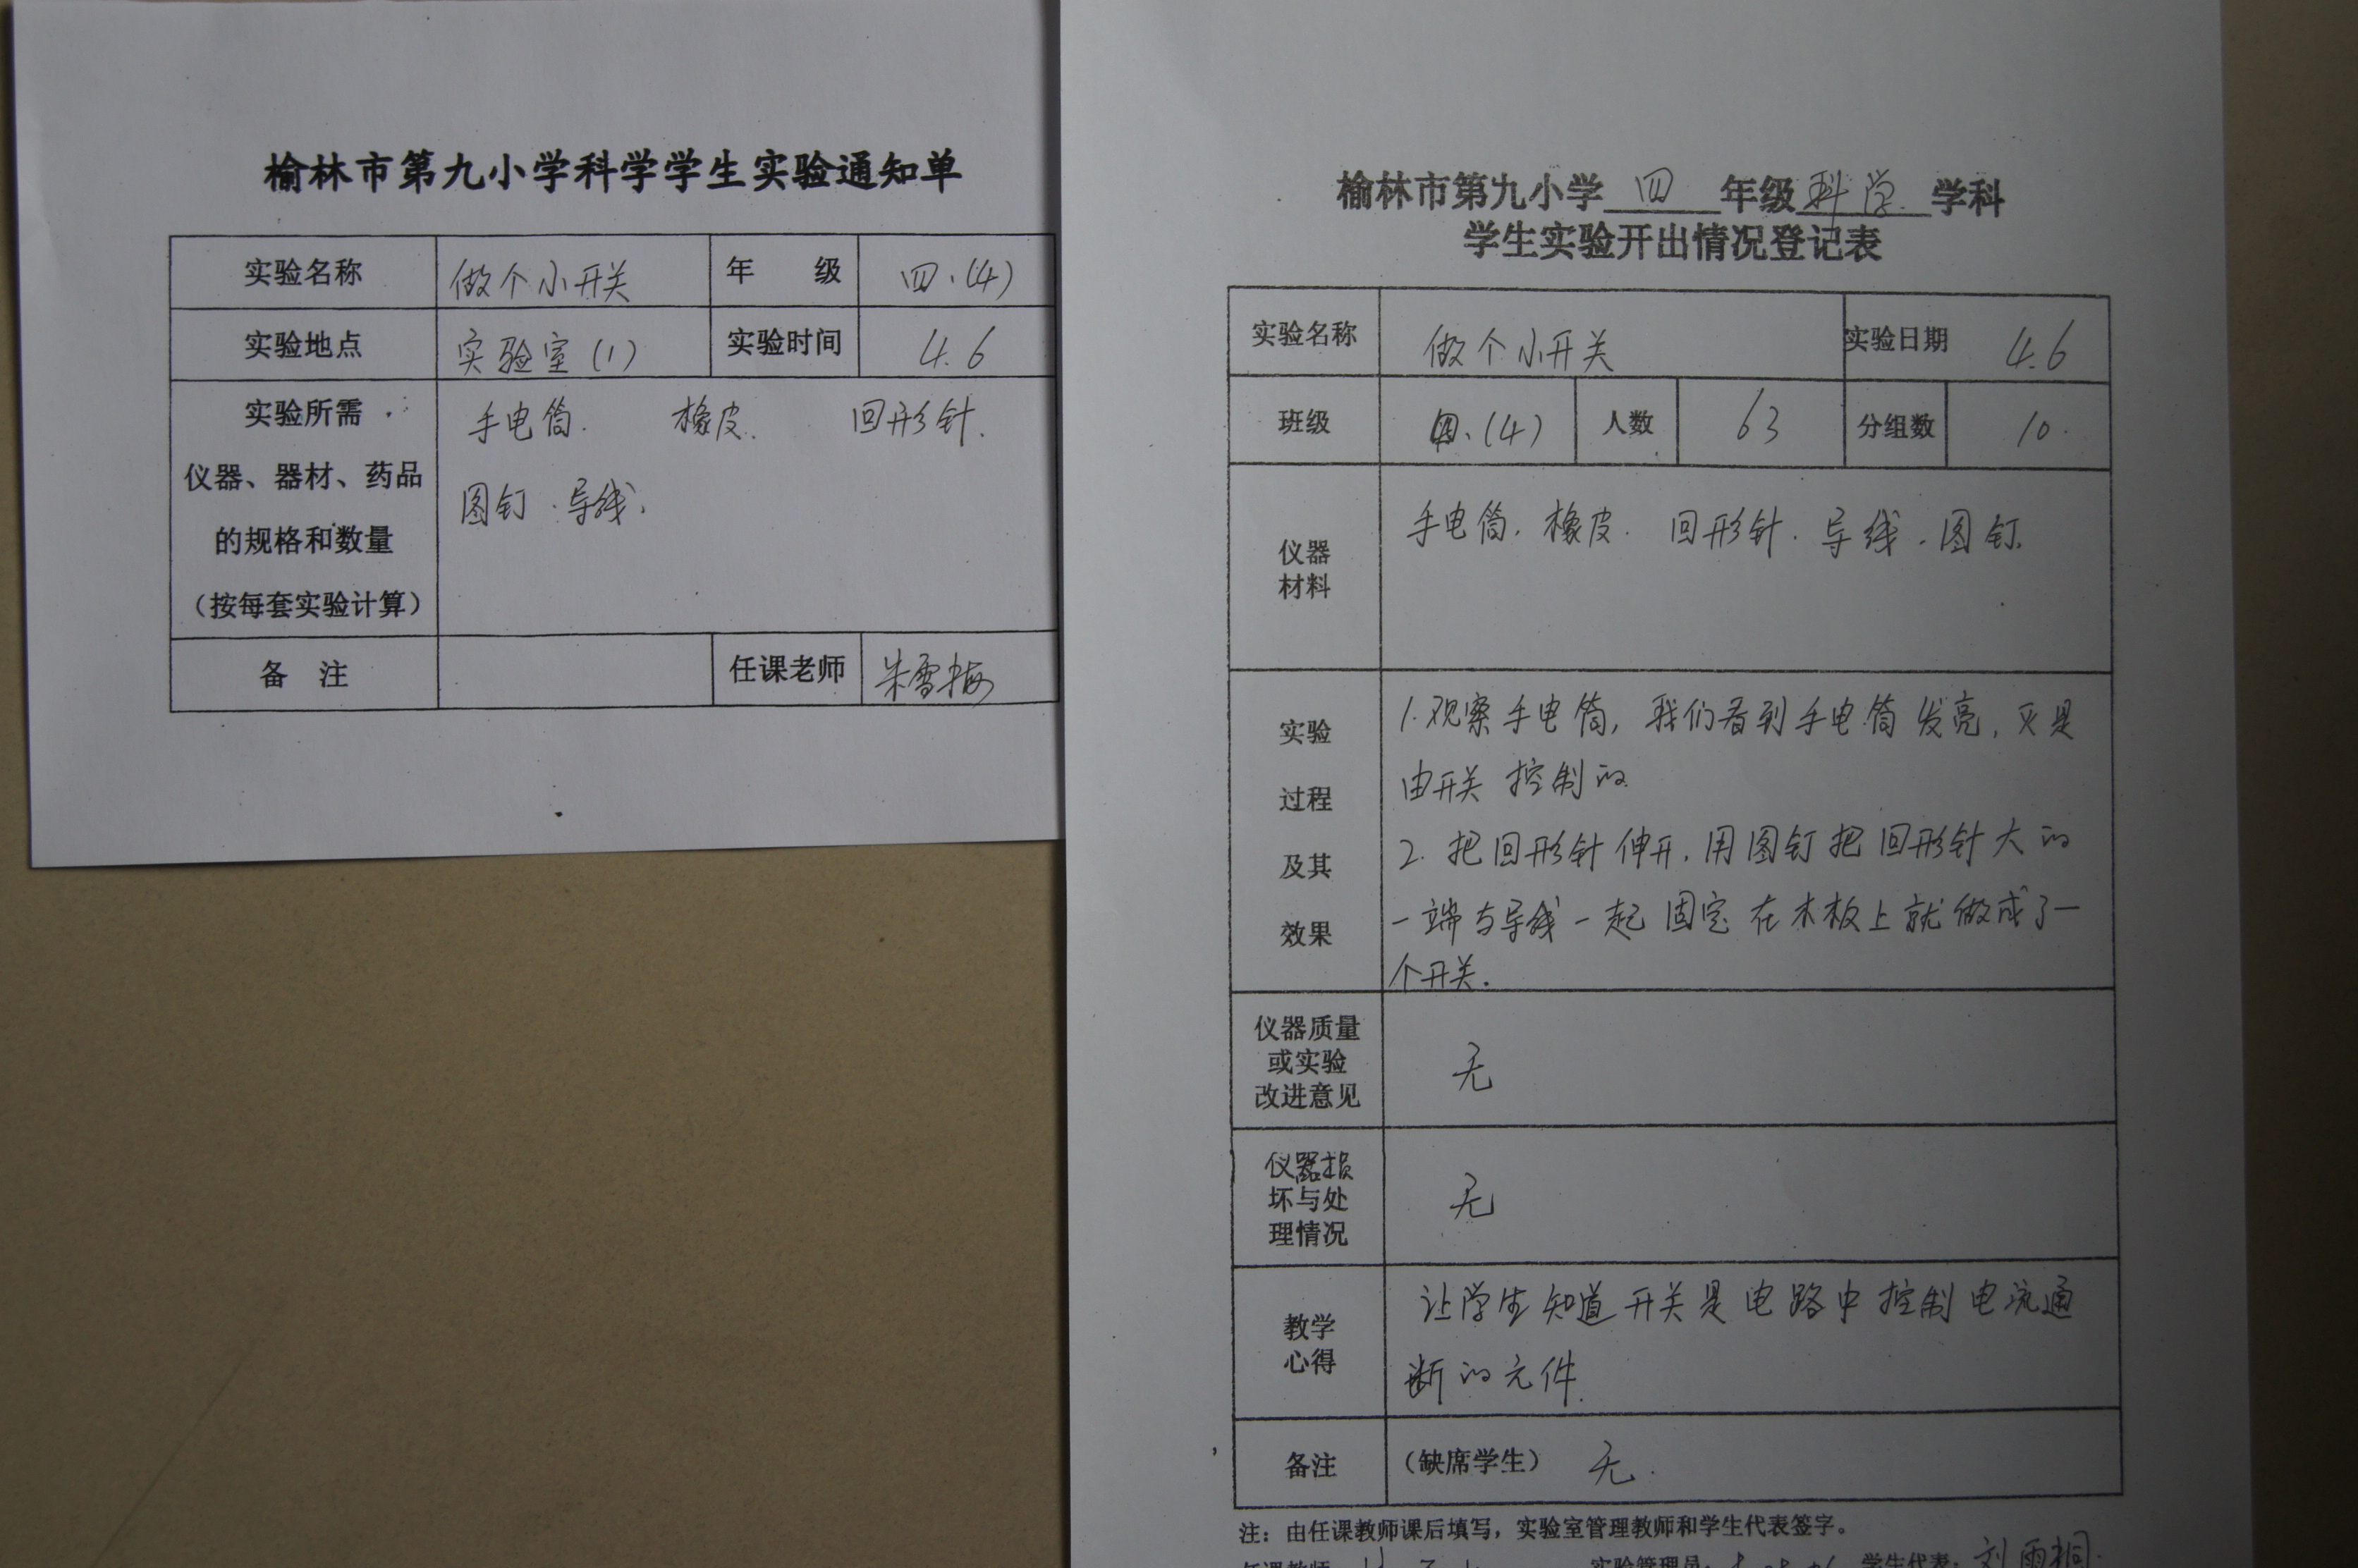 榆林市第九小学科学学生实验通知单
实验名称 做个小开关 年 级 四.(4)
实验地点 实验室(1) 实验时间 4.6
实验所需
仪器、器材、药品
的规格和数量
(按每套实验计算)
手电筒. 橡皮. 回形针.
图钉.导线.
备 注 任课老师 朱雪梅
榆林市第九小学 四 年级 科学 学科
学生实验开出情况登记表
实验名称 做个小开关 实验日期 4.6
班级 四.(4) 人数 63 分组数 10.
仪器
材料
手电筒.橡皮.回形针.导线.图钉.
实验
过程
及其
效果
1.观察手电筒,我们看到手电筒发亮,灭是
由开关控制的.
2.把回形针伸开.用图钉把回形针大的
一端与导线一起固定在木板上就做成了一
个开关.
仪器质量
或实验
改进意见
无
仪器损
坏与处
理情况
无
教学
心得
让学生知道开关是电路中控制电流通
断的元件.
备注 (缺席学生) 无.
注:由任课教师课后填写,实验室管理教师和学生代表签字。
任课教师 实验管理员: 学生代表:刘雨桐